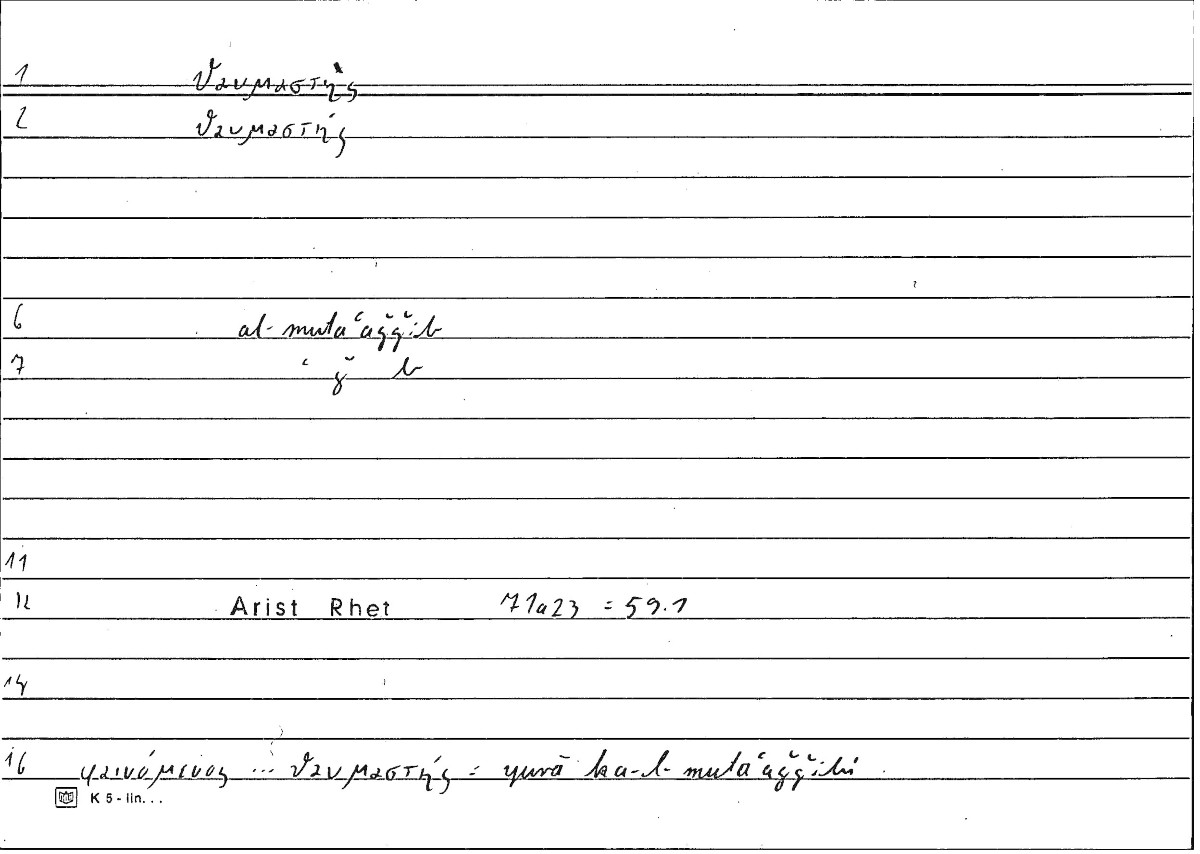 1 θαυμαστής
2 θαυμαστής
6 al-mutaʿaǧǧib
7 ʿ ǧ b
11
12 Arist Rhet 71a23 = 59.1
14
16 φαινόμενος ... θαυμαστής = yurā ka-l-mutaʿaǧǧibi
K 5 - lin. . .